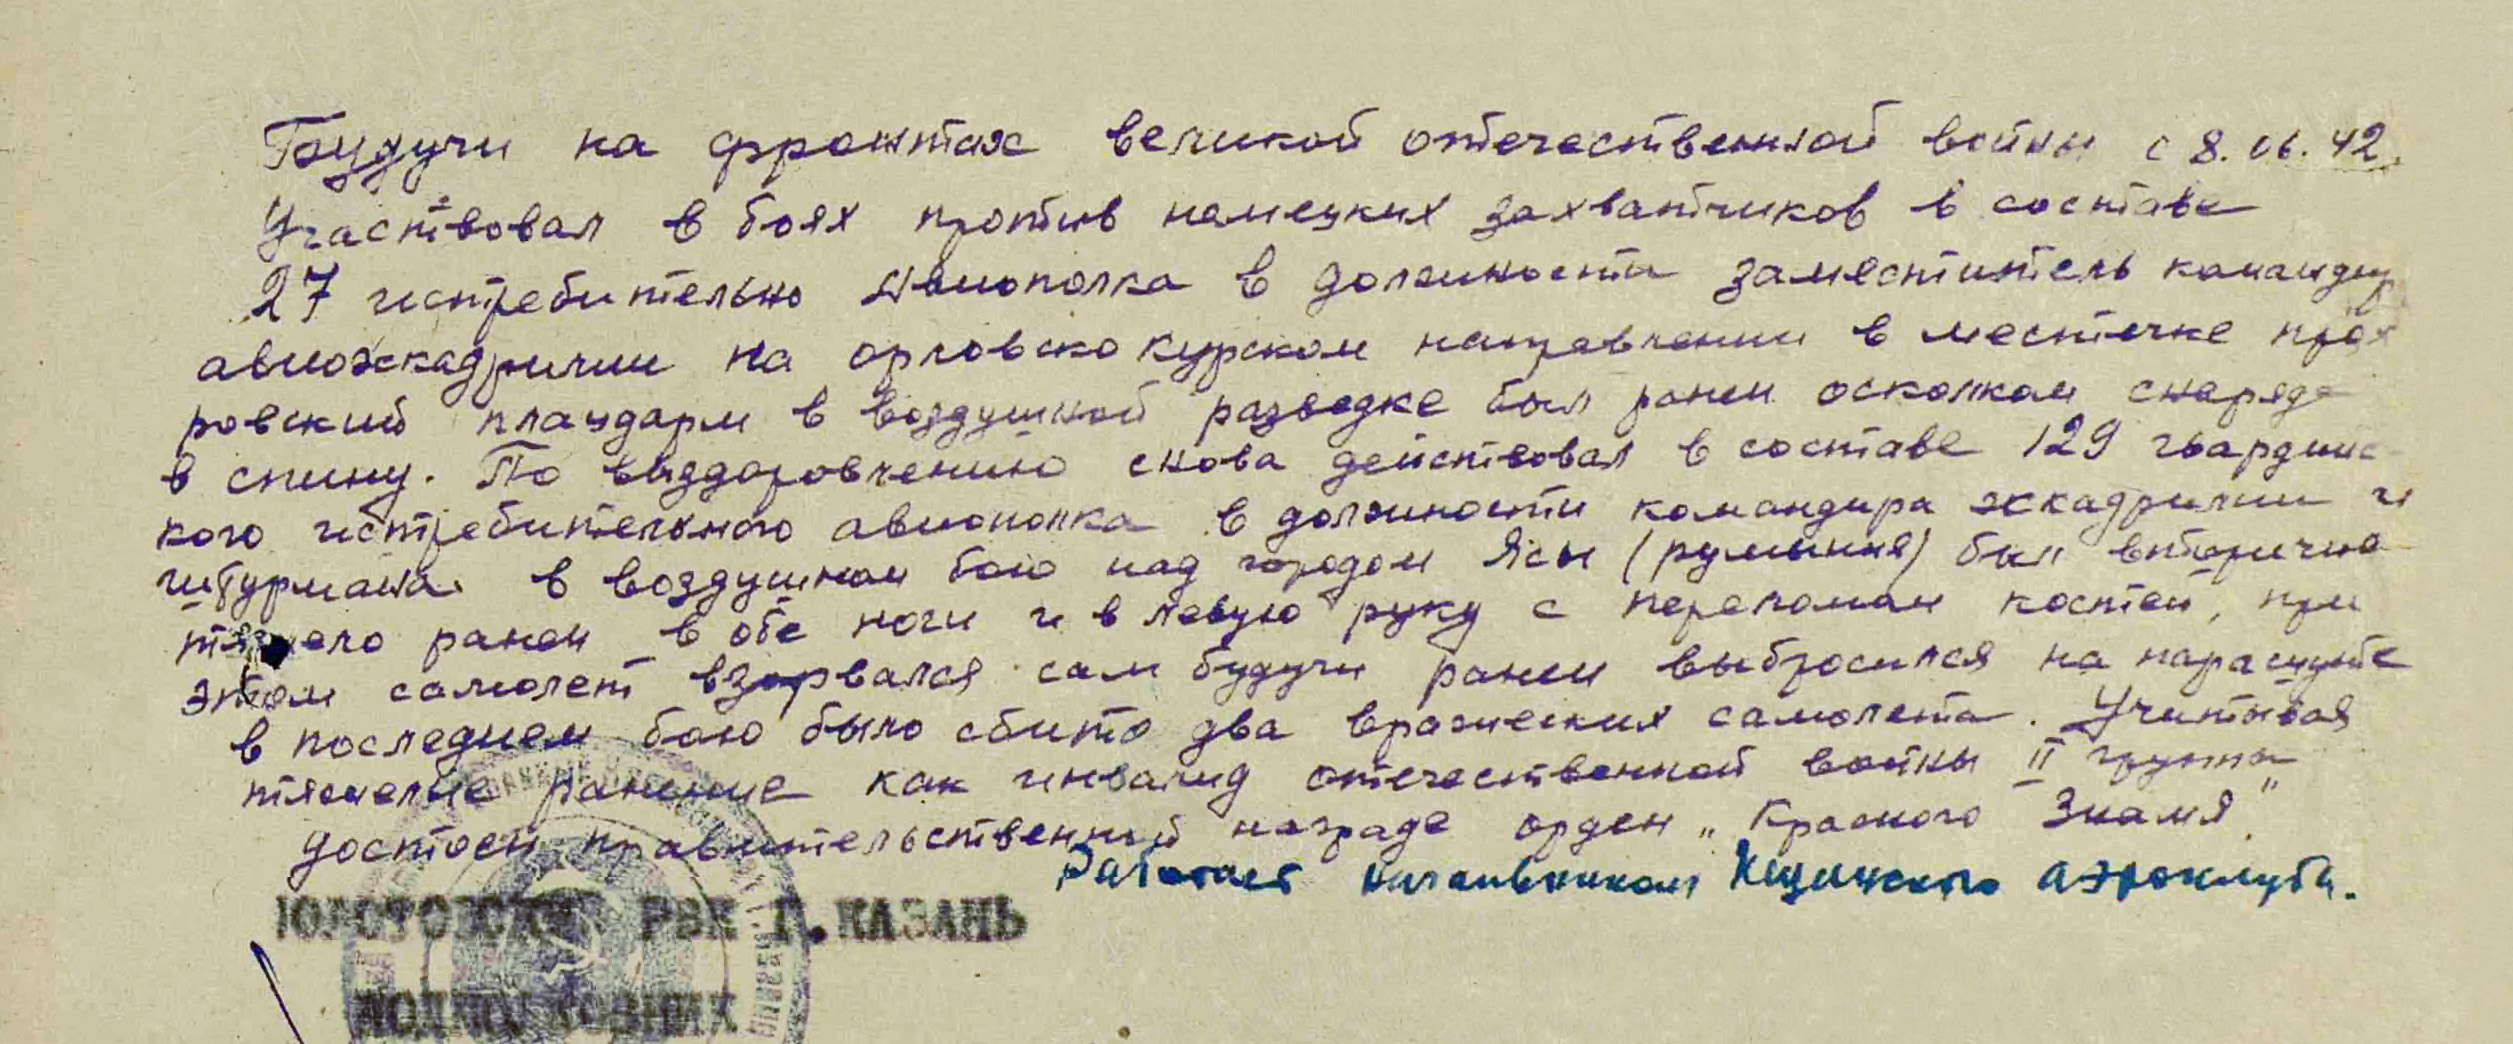 Будучи на фронтах великой отечественной войны с 8.06.42.
Участвовал в боях против немецких захватчиков в составе
27 истребительно Авиополка в должности заместитель командир
авиоэскадрилии на орловско курском направлении в местечке прох
ровский плаударм в воздушной разведке был ранен осколком снаряда
в спину. По выздоровлению снова действовал в составе 129 гвардийс
кого истребительного авиополка в должности командира эскадрилии и
штурмана в воздушном бою над городом Ясы (румыния) был вторично
тяжело ранен в обе ноги и в левую руку с переломам костей, при
этом самолет взорвался сам будучи ранен выбросился на парашуте
в последнем бою было сбито два вражеских самолета. Учитывая
тяжелые ранение как инвалид отечественной войны II группы
достоен правительственный награде орден „Красного Знамя".
Работает начальником аэроклуба.
РВК Г. КАЗАНЬ
ПОДПОЛКОВНИК